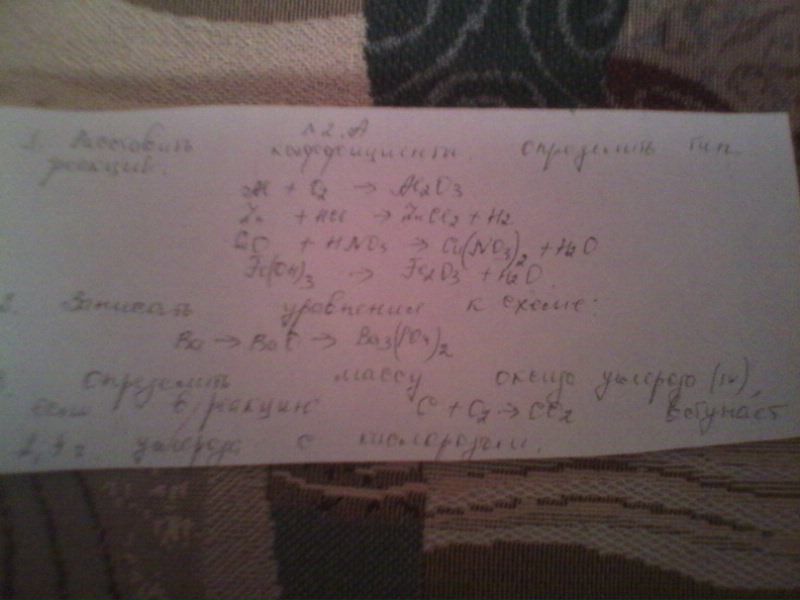 1. Расставить коэффициенты. Определить тип
реакции.
Al + O2 → Al2O3
Zn + HCl → ZnCl2 + H2
CuO + HNO3 → Cu(NO3)2 + H2O
Fe(OH)3 → Fe2O3 + H2O
2. Записать уравнения к схеме:
Ba → BaO → Ba3(PO4)2
Определить массу оксида углерода (IV),
если в реакцию C + O2 → CO2 вступает
г углерода с кислородом.